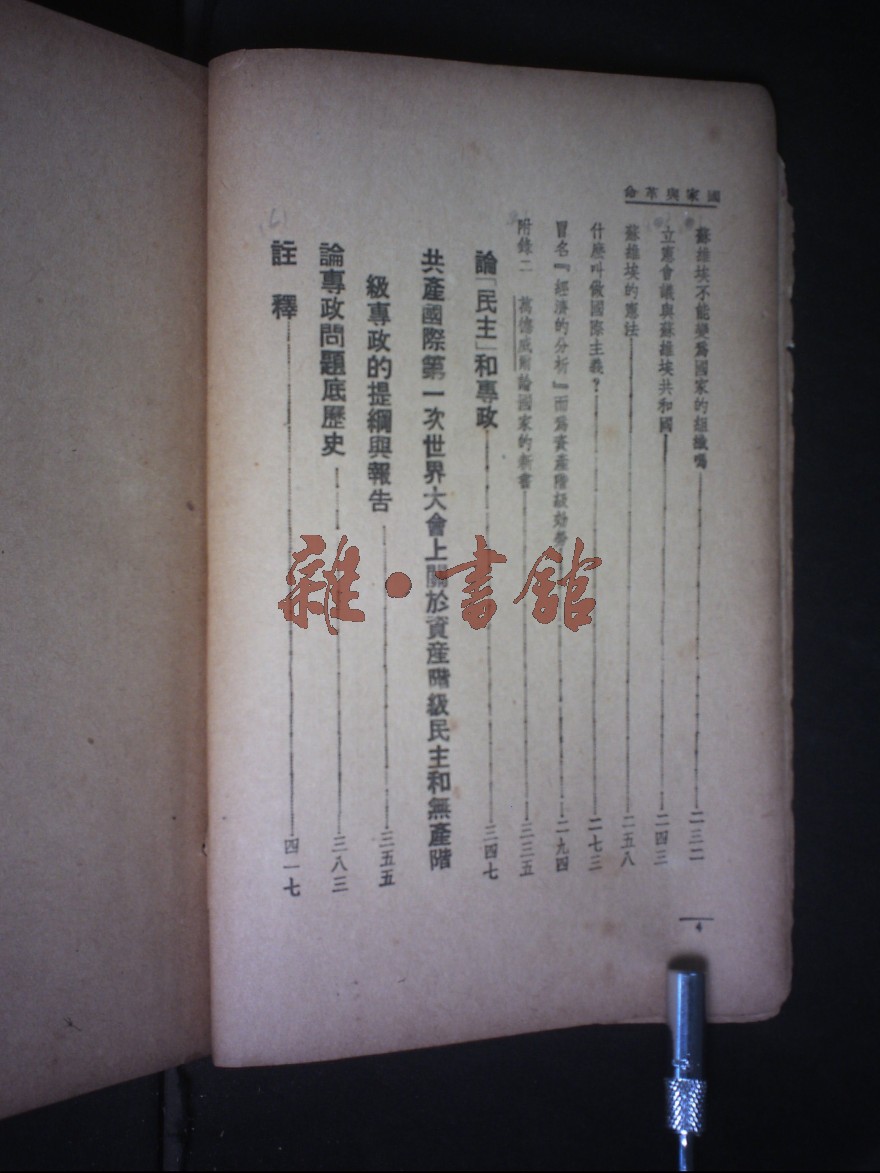 國家與革命
蘇維埃不能變爲國家的組織嗎 二三二
立憲會議與蘇維埃共和國 二四三
蘇維埃的憲法 二五八
什麽叫做國際主義? 二七三
冒名『經濟的分析』而爲資產階級効勞 二九四
附錄二 萬德威爾論國家的新書 三三五
論「民主」和專政 三四七
共產國際第一次世界大會上關於資產階級民主和無產階
級專政的提綱與報告 三五五
論專政問題底歷史 三八三
註釋 四一七
4
雜·書館